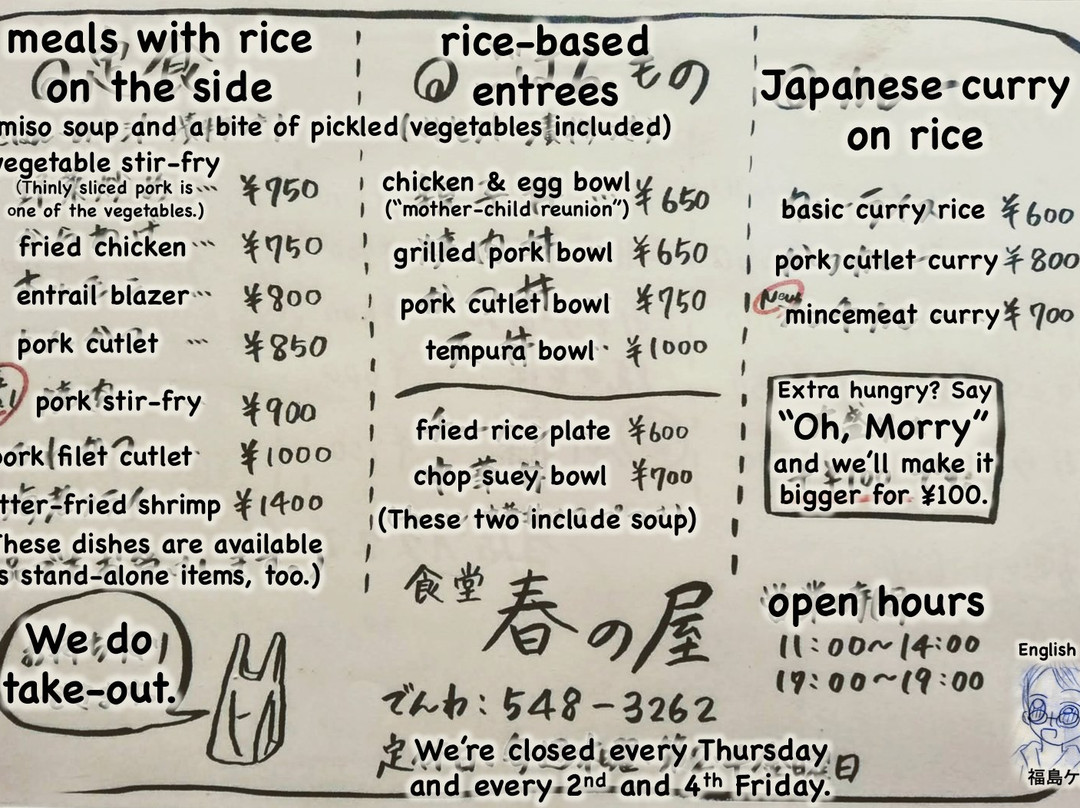 meals with rice
on the side
miso soup and a bite of pickled vegetables included)
vegetable stir-fry
(Thinly sliced pork is… ¥750
one of the vegetables.)
fried chicken … ¥750
entrail blazer… ¥800
pork cutlet … ¥850
pork stir-fry ¥900
pork filet cutlet ¥1000
tter-fried shrimp ¥1400
These dishes are available
s stand-alone items, too.)
We do
take-out.
rice-based
entrees
chicken & egg bowl ¥650
("mother-child reunion")
grilled pork bowl ¥650
pork cutlet bowl ¥750
tempura bowl ¥1000
fried rice plate ¥600
chop suey bowl ¥700
(These two include soup)
食堂 春の屋
でんわ：548-3262
定 We're closed every Thursday
and every 2nd and 4th Friday. 日
Japanese curry
on rice
basic curry rice ¥600
pork cutlet curry ¥800
New mincemeat curry ¥700
Extra hungry? Say
"Oh, Morry"
and we'll make it
bigger for ¥100.
open hours
11:00~14:00
17:00~19:00
English
福島ケ